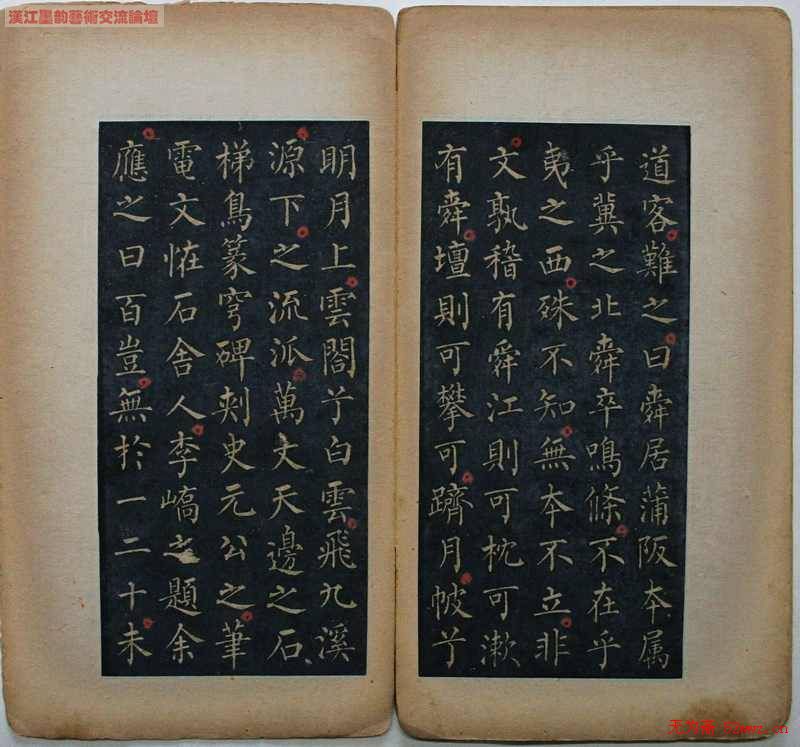 漢江墨韵藝術交流論壇
道客難之曰舜居蒲阪本属
乎冀之北舜卒鳴條不在乎
夷之西殊不知無本不立非
文孰稽有舜江則可枕可漱
有舜壇則可攀可躋月帔兮
明月上雲閣兮白雲飛九溪
源下之流派萬丈天邊之石
梯鳥篆穹碑刺史元公之筆
電文恠石舍人李嶠之題余
應之曰百豈無於一二十未